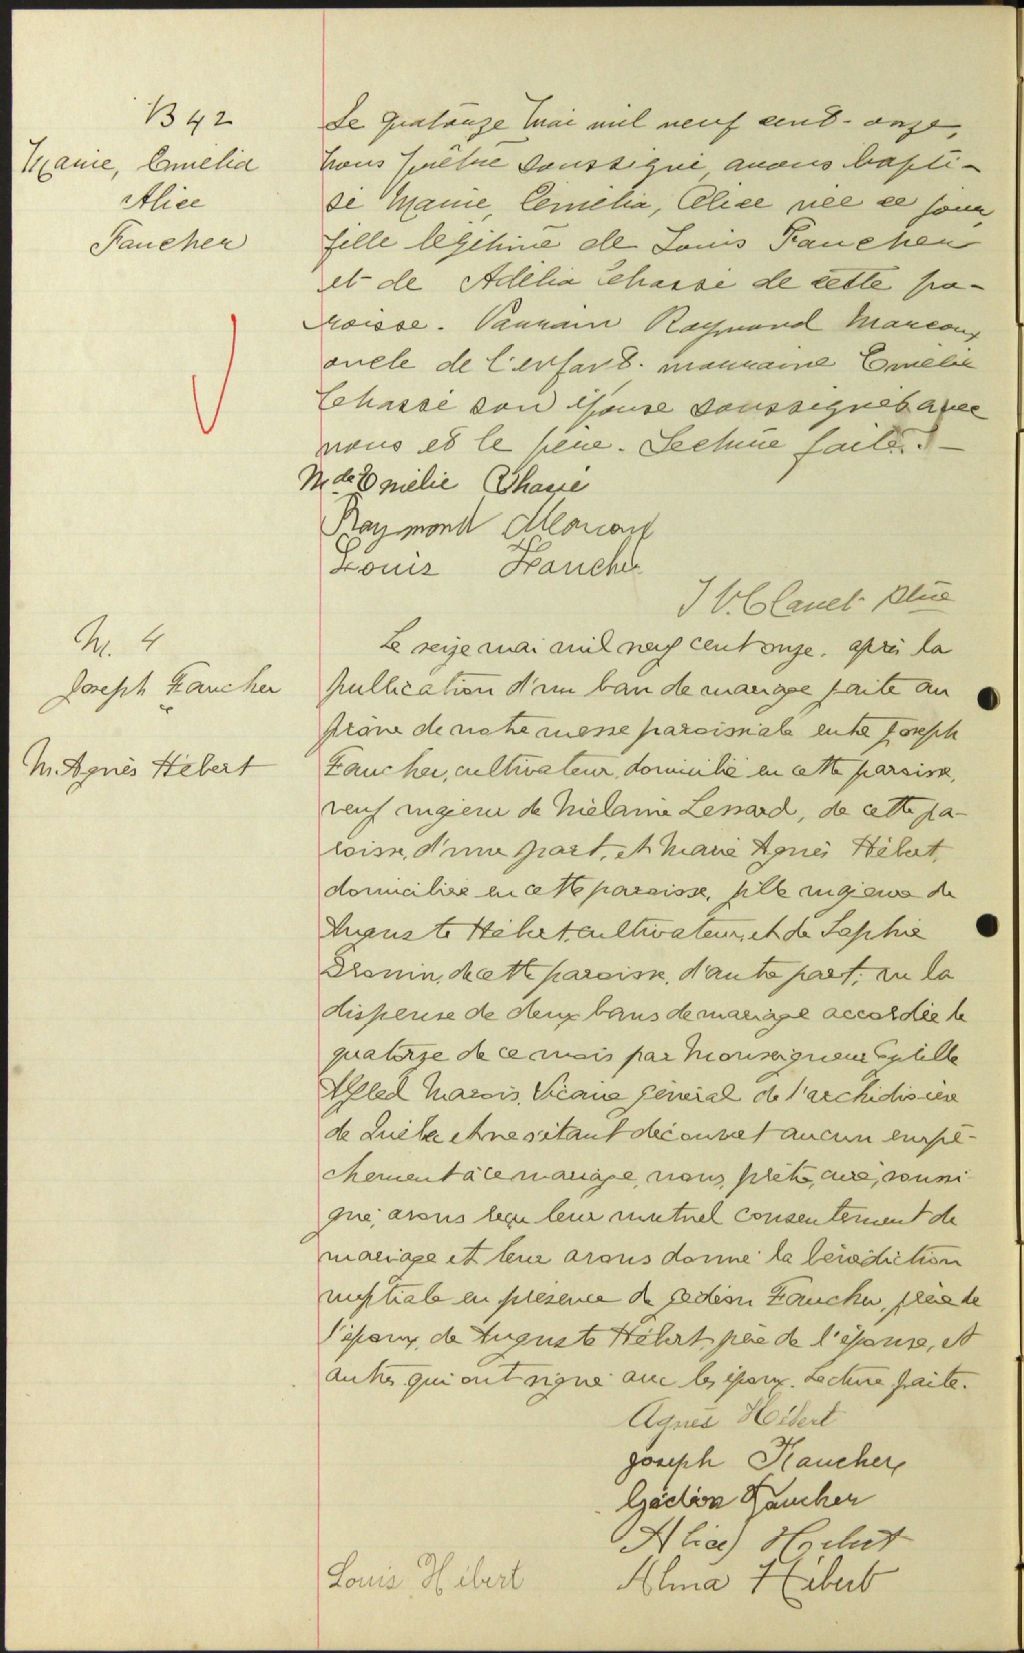 B 42
Marie, Emélia
Alice
Faucher
Le quatorze Mai mil neuf cent-onze,
nous prêtre soussigné, avons bapti-
sé Marie, Emélia, Alice née ce jour,
fille légitime de Louis Faucher
et de Adélia Chassé de cette pa-
roisse. Parrain Raymond Marcoux
oncle de l'enfant. marraine Emélie
Chassé son épouse soussignés avec
nous et le père. Lecture faite. –
Mde Emélie Chassé
Raymond Marcoux
Louis Faucher
J V. Ptre
M. 4
Joseph Faucher
&
M. Agnès Hébert
Le seize mai mil neuf cent onze, après la
publication d'un ban de mariage faite au
prône de notre messe paroissiale entre Joseph
Faucher, cultivateur, domicilié en cette paroisse,
veuf majeur de Mélanie Lessard, de cette pa-
roisse, d'une part, et Marie Agnès Hébert,
domiciliée en cette paroisse, fille majeure de
Auguste Hébert, cultivateur, et de Sophie
Drouin, de cette paroisse, d'autre part; vu la
dispense de deux bans de mariage accordée le
quatorze de ce mois par Monseigneur Cyrille
Alfred Marois, Vicaire général de l'archidiocèse
de Québec et ne s'étant découvert aucun empê-
chement à ce mariage, nous, prêtre, curé, soussi-
gné, avons reçu leur mutuel consentement de
mariage et leur avons donné la bénédiction
nuptiale en présence de Gédéon Faucher, père de
l'époux, de Auguste Hébert, père de l'épouse, et
autres qui ont signé avec les époux. Lecture faite.
Agnès Hébert
Joseph Faucher
Gédéon Faucher
Alice Hébert
Louis Hébert Alma Hébert